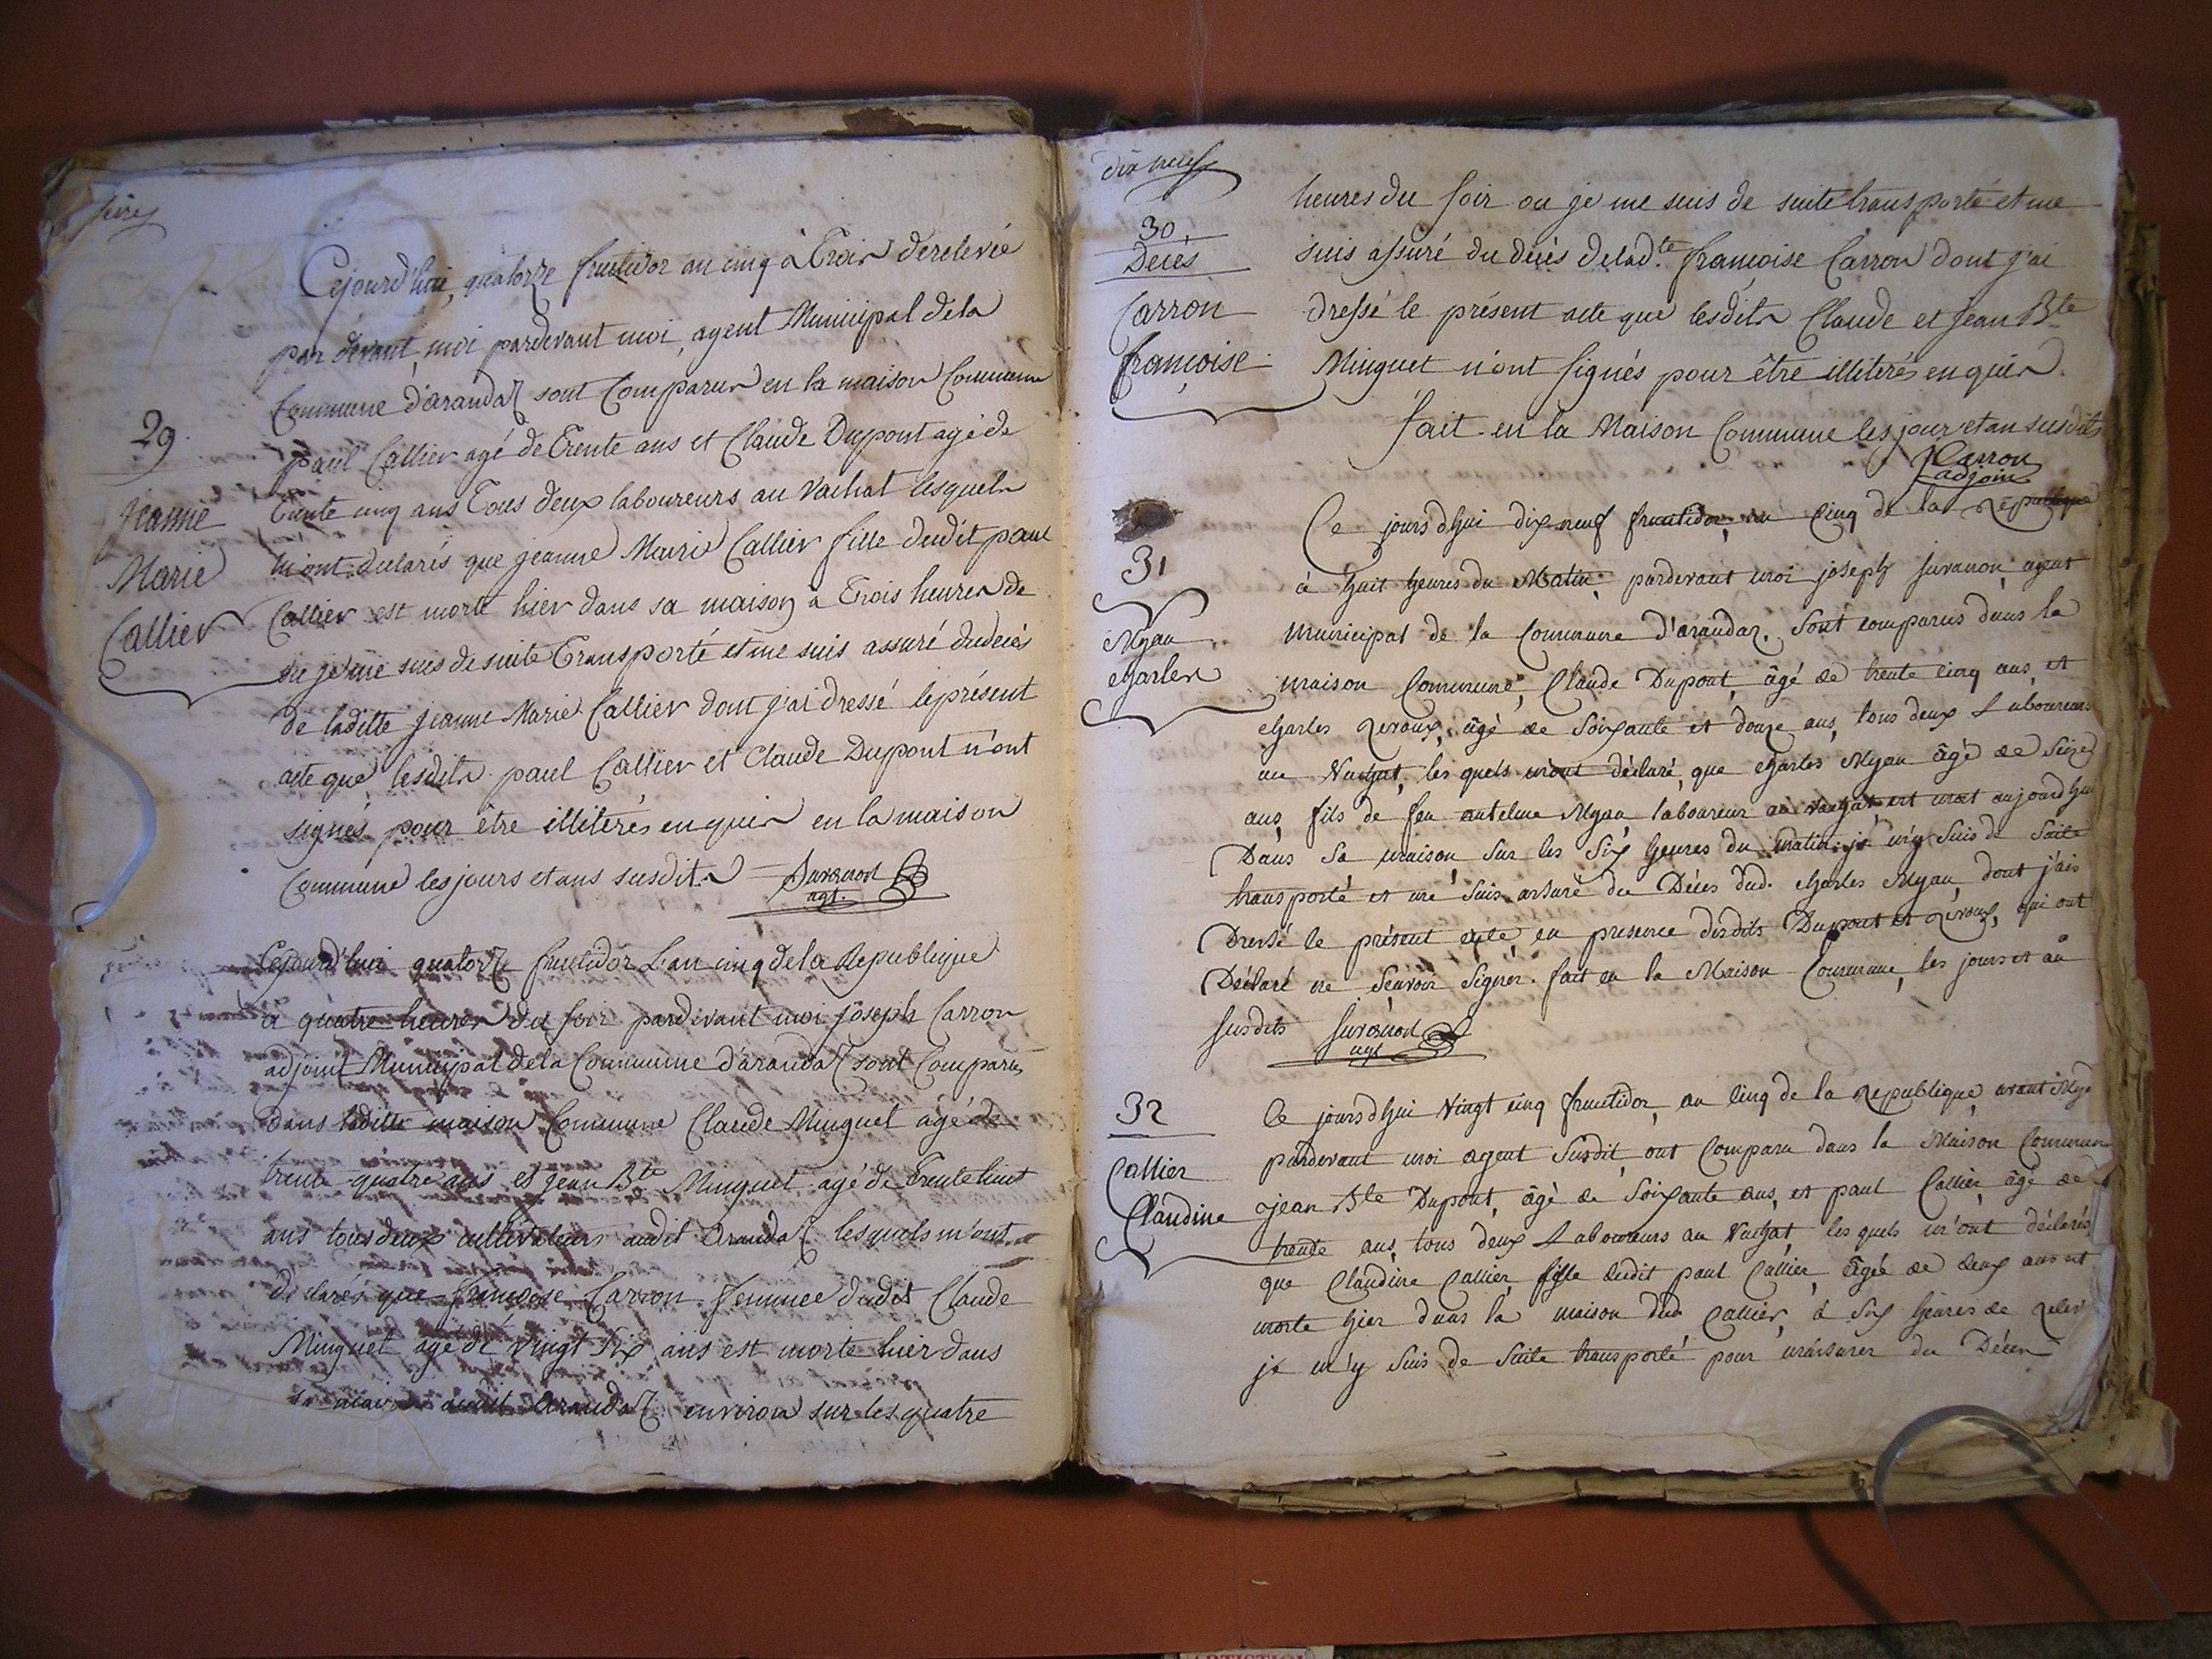 Cejourd'hui, quatorze fructidor an cinq à Trois derelevée
par devant moi pardevant moi, agent Municipal dela
Commune d'arandaz sont Comparus en la maison Commune
29
paul Callier agé de Trente ans et Claude Dupont agé de
Trente cinq ans Tous deux laboureurs au Vachat lesquels
Jeanne
m'ont declarés que jeanne Marie Callier fille dudit paul
Marie
Callier est morte hier dans sa maison a Trois heures de
Callier
je me suis de suite Transporté et me suis assuré dudecès
de laditte jeanne Marie Callier dont j'ai dressé leprésent
acte que lesdits paul Callier et Claude Dupont n'ont
signés pour être illiterés enquis en la maison
Commune les jours et ans susdits Juvanon
agt.
Cejourd'hui quatorze fructidor L'an cinq dela Republique
a quatre heures du soir pardevant moi joseph Carron
adjoint Municipal dela Commune d'arandaz sont Comparus
dans laditte maison Commune Claude Minguet agé de
trente quatre ans et jean Bte Minguet agé de Trente huit
ans tous deux cultivateurs audit arandaz lesquels m'ont
declarés que françoise Carron femmee dudit Claude
Minguet agé de vingt six ans est morte hier dans
sa maison audit Arandaz environ sur les quatre
dix neuf
heures du soir ou je me suis de suite transporté et me
30
Décès
suis assuré du décès delad.te françoise Carron dont j'ai
Carron
dressé le présent acte que lesdits Claude et Jean Bte
françoise
Minguet n'ont signés pour être illiterés enquis.
fait en la Maison Commune les jour et an susdits
JCarron
adjoint
Ce jourdhui dix neuf fructidor, an Cinq de la République
31
à huit heures du Matin, pardevant moi joseph Juvanon agent
Municipal de la Commune d'arandaz. Sont comparus dans la
Myan
charles
maison Commune, Claude Dupont, âgé de trente cinq ans, et
charles Revoux, âgé de Soixante et douze ans, tous deux Laboureurs
au Vachat, les quels m'ont déclaré, que charles Myan âgé de Seize
ans, fils de feu antelme Myan laboureur au vachat est mort aujourdhui
Dans Sa maison, Sur les Six heures du Matin je m'y Suis de Suite
transporté et me Suis assuré du Décès dud. charles Myan, dont j'ais
Dressé le présent acte, en presence desdits Dupont et Revoux, qui ont
Déclaré ne Scavoir Signer. fait en la Maison Commune, les jours et an
susdits Juvanon
agt
32
Ce jourdhui Vingt cinq fructidor, an Cinq de la Republique, avant Mydi
pardevant moi agent Susdit, ont Comparu dans la Maison Commune
Callier
jean Bte Dupont, âgé de Soixante ans, et paul Callier, âgé de
Claudine
trente ans, tous deux Laboureurs au Vachat, les quels m'ont déclarés,
que Claudine Callier, fille dudit paul Callier, âgée de deux ans et
morte hier dans la maison dud Callier, à Six heures de
je m'y Suis de Suite transporté pour m'assurer du Décès